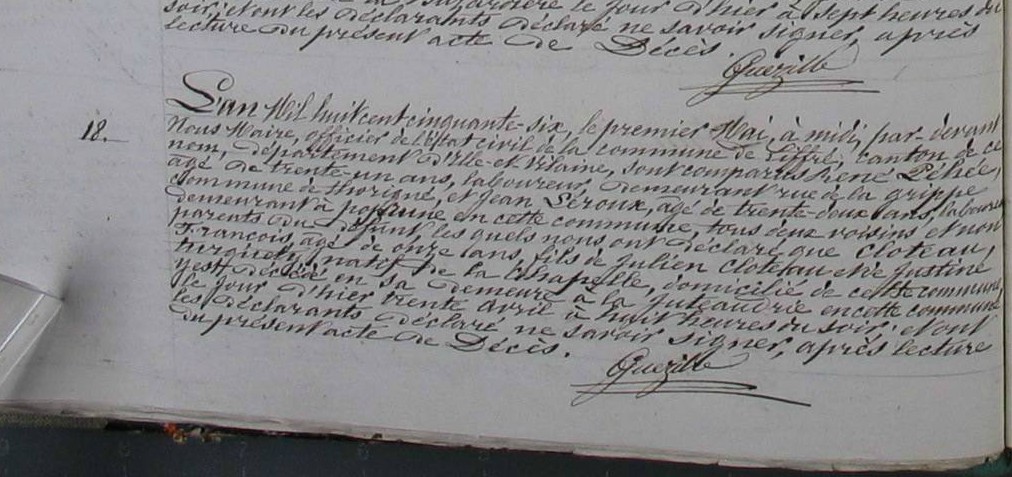 soir, et ont les déclarants déclaré ne savoir signer, après
lecture du présent acte de Décès.
Guezille
18.
L'an Mil huit cent cinquante-six, le premier Mai, à midi, par devant
Nous Maire, officier de l'état civil de la commune de Liffré, canton de ce
nom, département d'Ille-et-Vilaine, sont comparus René Péhée,
âgé de trente-un ans, laboureur, demeurant rue à la grippe
Commune de thorigné, et Jean Leroux, âgé de trente-deux ans, laboureur
demeurant à en cette commune, tous deux voisins et non
parents du défunt les quels nous ont déclaré que Cloteau,
François, âgé de onze ans, fils de Julien Cloteau et de Justine
natif de la Chapelle, domicilié de cette commune
y est décédé en sa demeure à la en cette commune
le jour d'hier trente avril à huit heures du soir, et ont
les déclarants déclaré ne savoir signer, après lecture
du présent acte de Décès.
Guezille